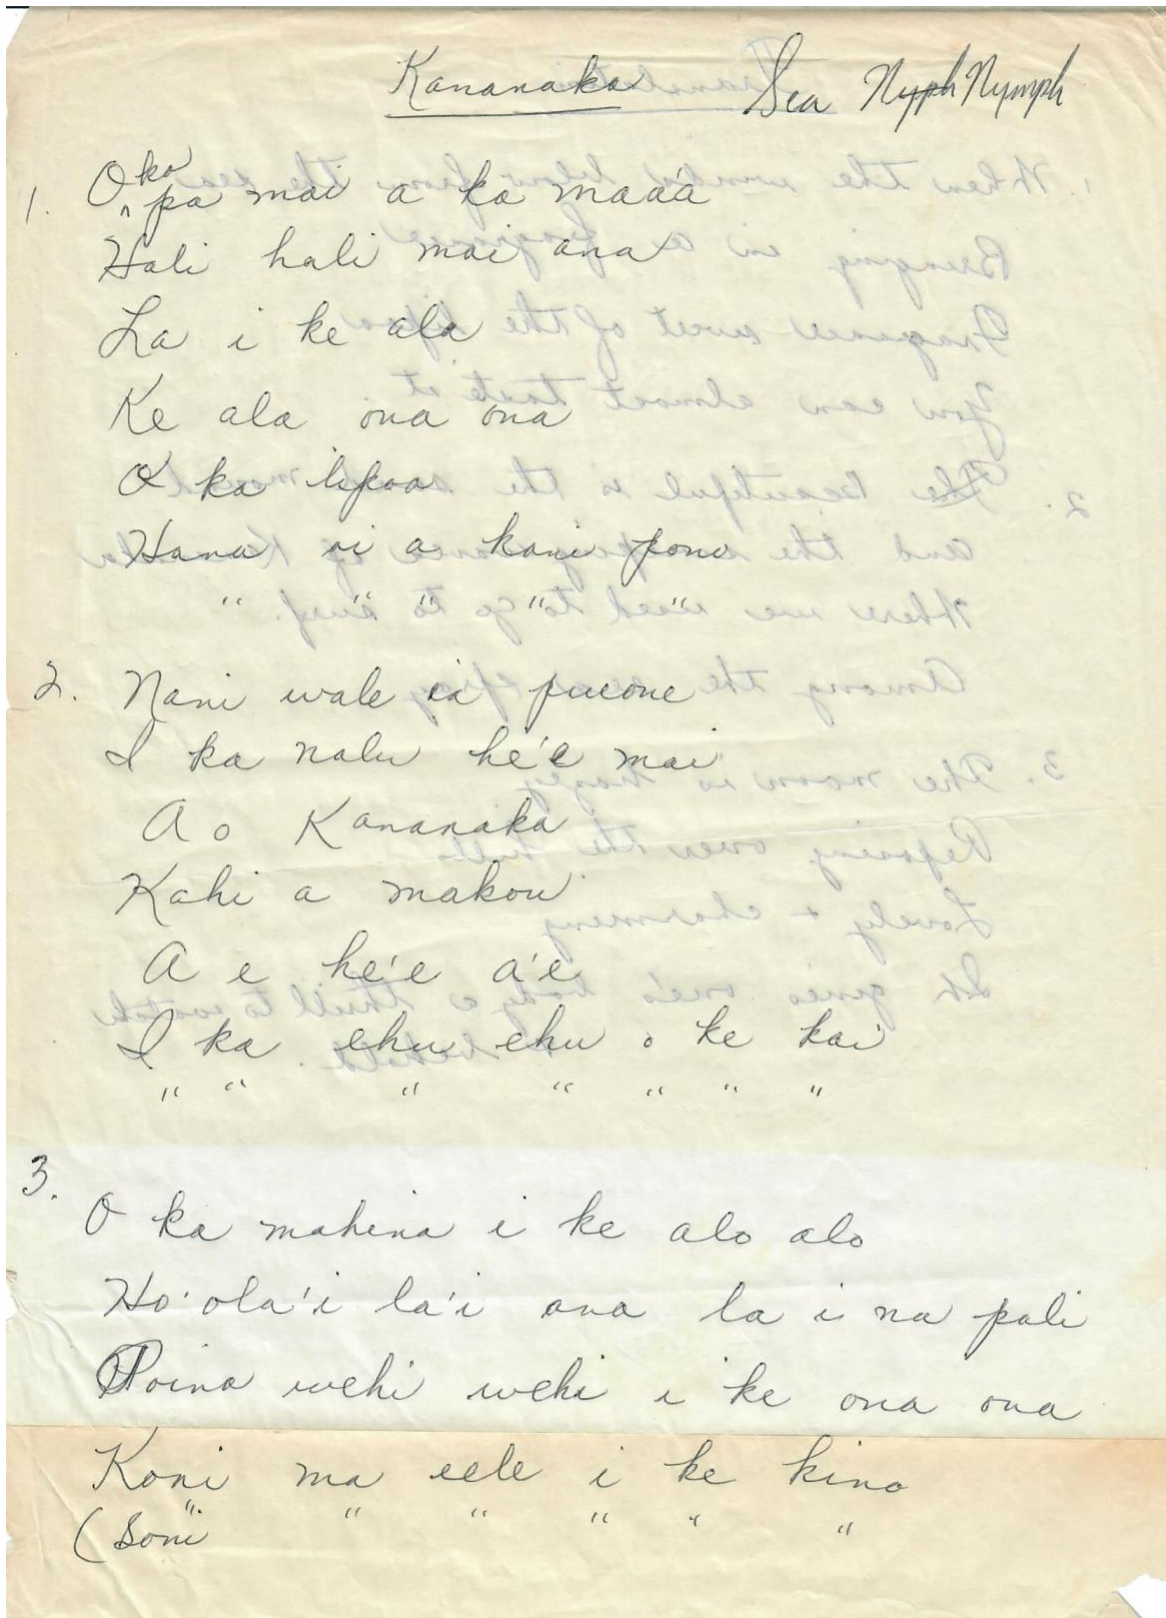 Kananaka Sea Nyph Nymph
1. O ka pa mai a ka maaá
Hali hali mai ana
La i ke ala
Ke ala ona ona
O ka lipoa
Hana oi a kani pono
" " " " "
2. Nani wale ia pueone
I ka nalu he'e mai
A o Kananaka
Kahi a makou
A e he'e a'e
I ka ehu ehu o ke kai
" " " " " " "
3. O ka mahina i ke alo alo
Ho'ola'i la'i ana la i na pali
Poina wehi wehi i ke ona ona
Koni ma eele i ke kino
(Boni " " " " " "